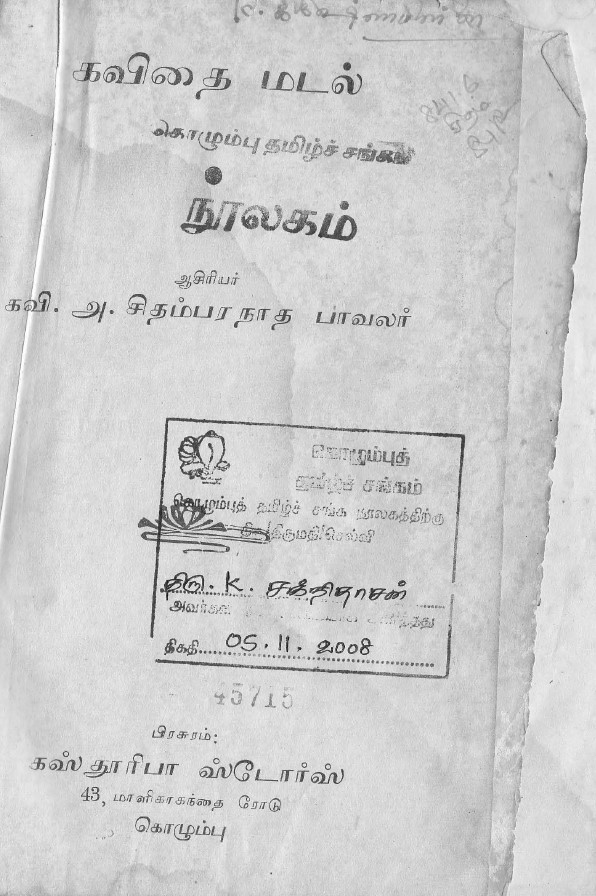 கவிதை மடல்
கொழும்பு தமிழ்ச் சங்கம்
நூலகம்
ஆசிரியர்
கவி. அ. சிதம்பரநாத பாவலர்
கொழும்புத்
தமிழ்ச் சங்கம்
கொழும்புத் தமிழ்ச் சங்க நூலகத்திற்கு
திரு/திருமதி/செல்வி
திரு. K. சக்திதாசன்
அவர்கள்
திகதி 05.11.2008
45715
பிரசுரம்:
கஸ்தூரிபா ஸ்டோர்ஸ்
43, மாளிகாகந்தை ரோடு
கொழும்பு